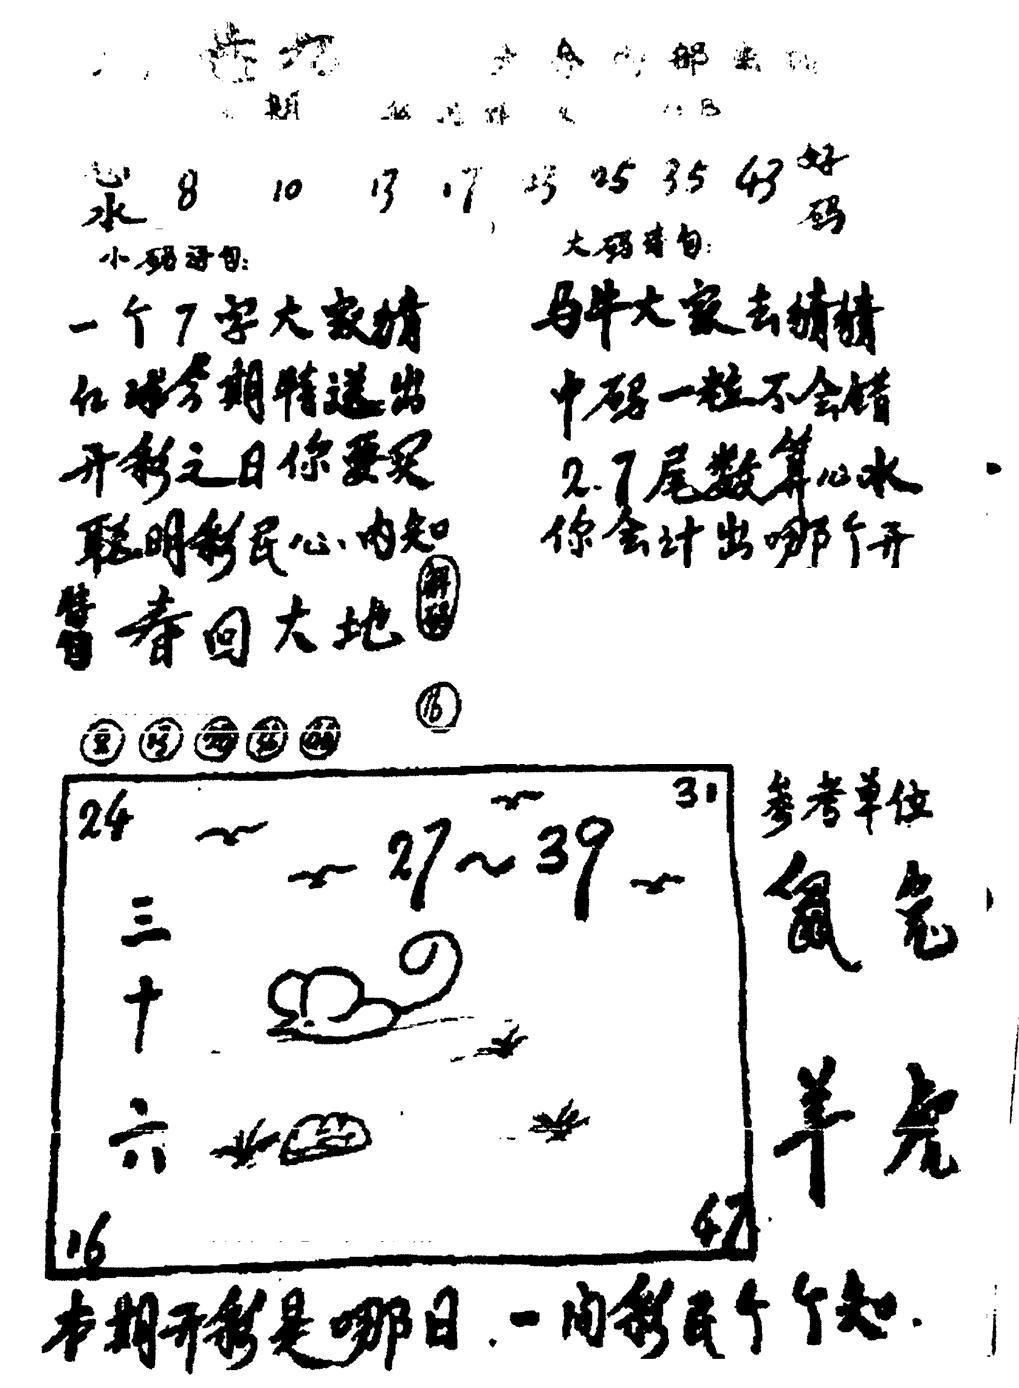 期
心水 8 10 13 17 23 25 35 43 好码
小码诗句:
大码诗句:
一个7字大家猜
红球今期特送出
开彩之日你要买
聪明彩民心内知
马牛大家去猜猜
中码一粒不会错
2.7尾数算心水
你会计出哪个开
春回大地
解码
16
24
31
27~39
三十六
16
47
参考单位
鼠 兔
羊 虎
本期开彩是哪日.一问彩民个个知.